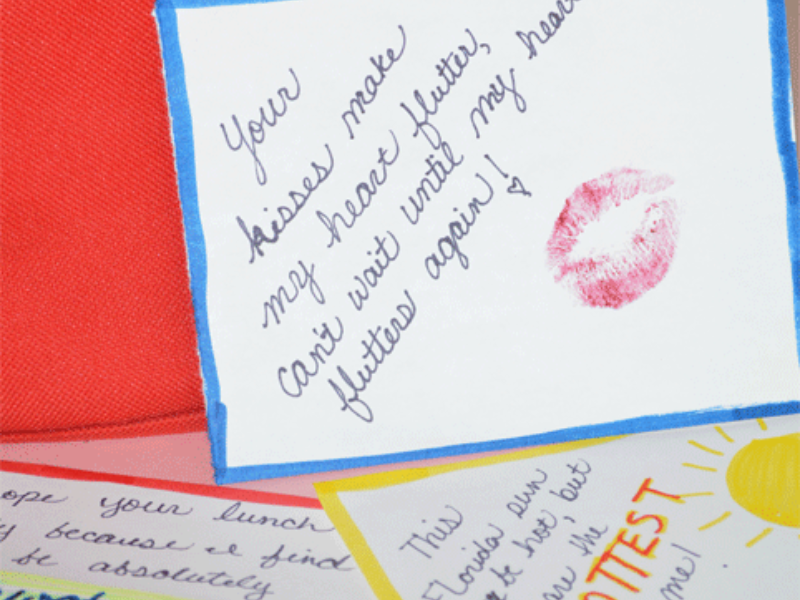 Your
kisses make
my heart flutter,
can't wait until my heart
flutters again!
ope your lunch
because
find
be absolutely
This
Florida sun
be hot, but
are the
OTTEST
me!